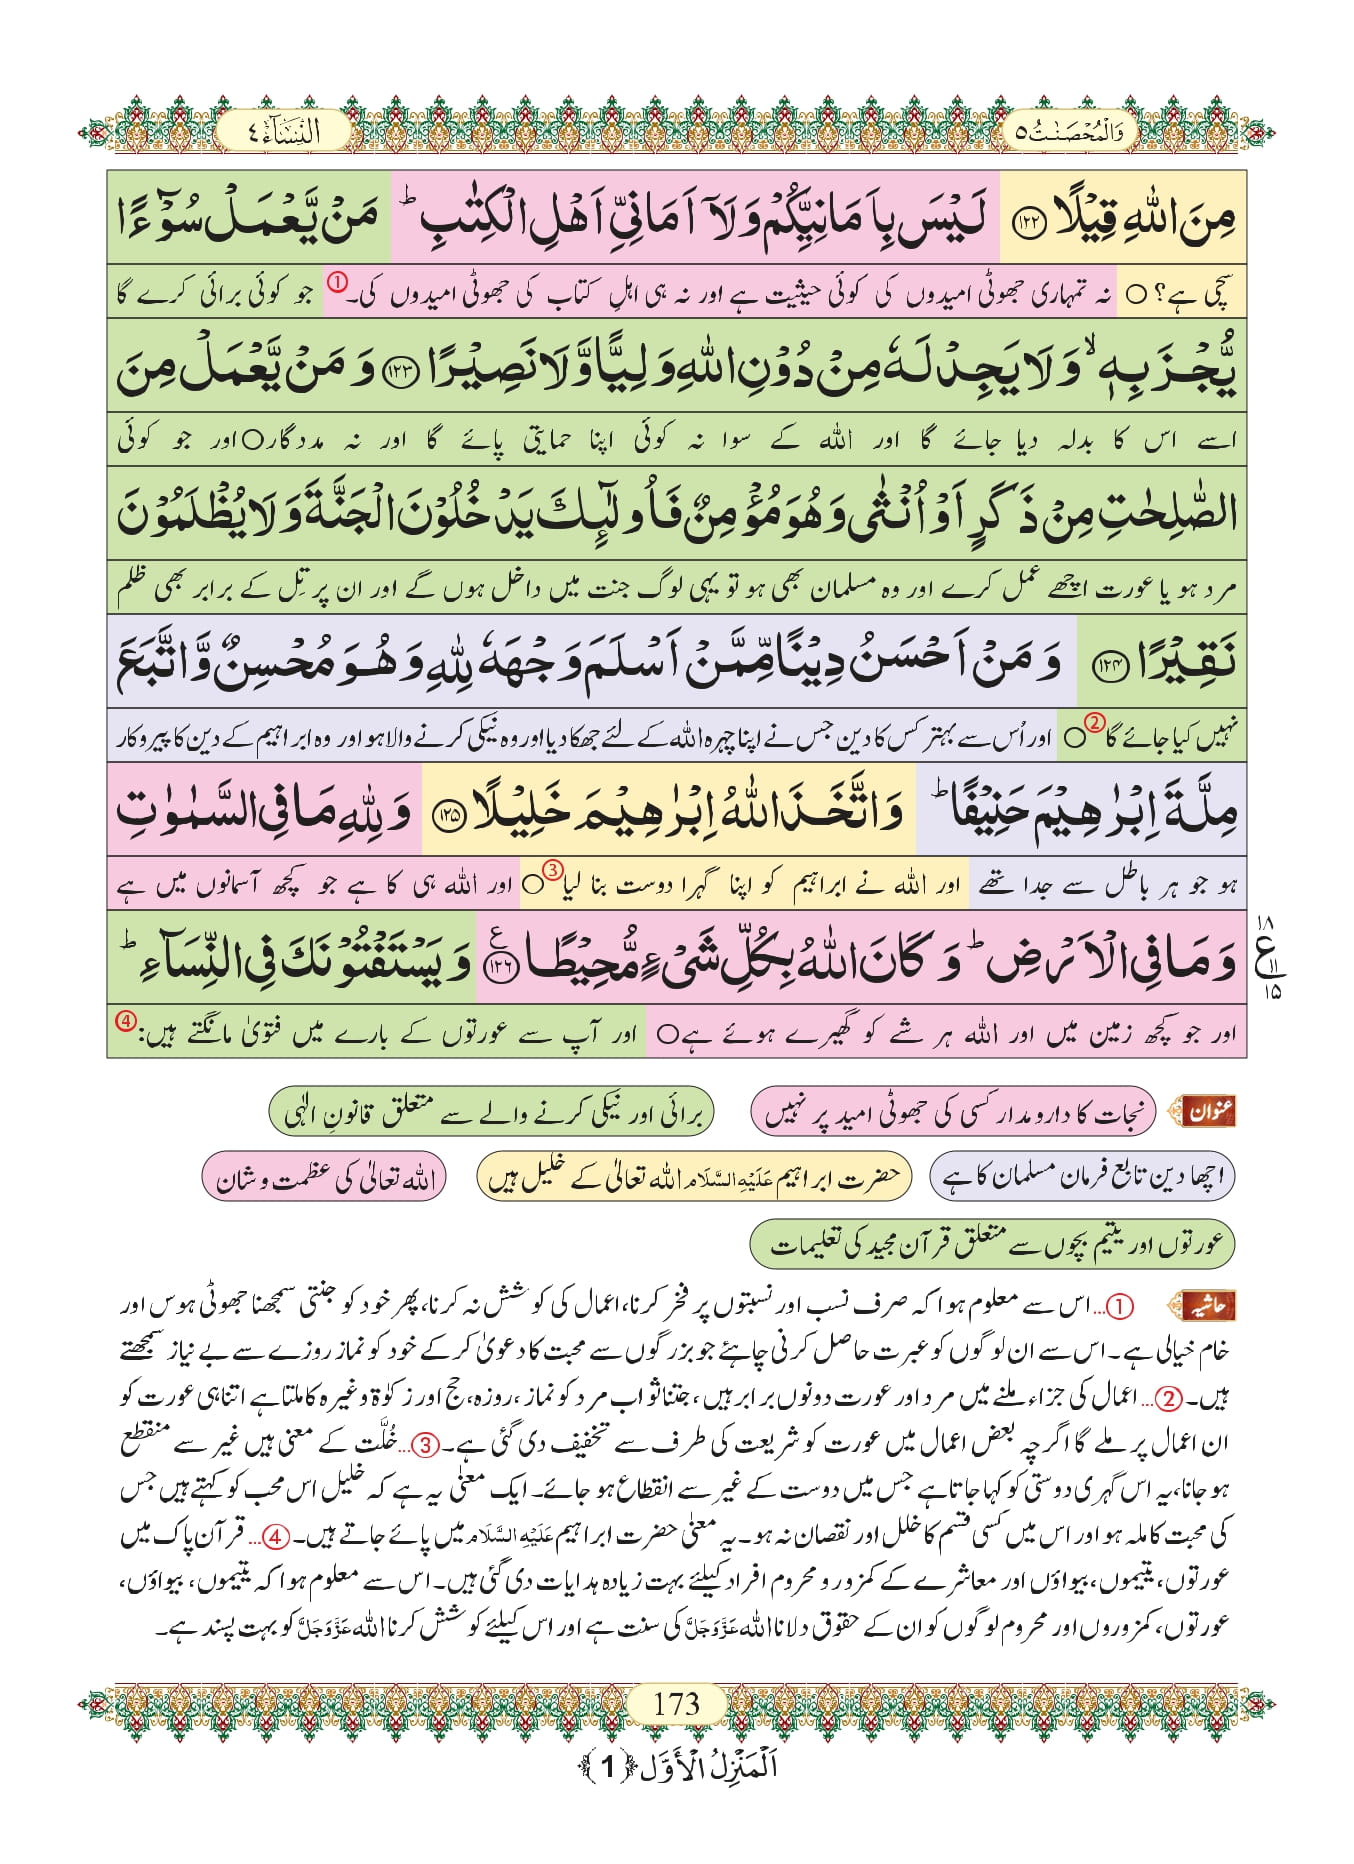 وَالْمُحْصَنٰتُ ٥
النِّسَآء ٤
مِنَ اللّٰهِ قِیْلًا ﴿۱۲۲﴾ لَیْسَ بِاَمَانِیِّكُمْ وَلَاۤ اَمَانِیِّ اَهْلِ الْكِتٰبِ ؕ مَنْ یَّعْمَلْ سُوْٓءًا
سچی ہے؟ ○ نہ تمہاری جھوٹی امیدوں کی کوئی حیثیت ہے اور نہ ہی اہلِ کتاب کی جھوٹی امیدوں کی۔① جو کوئی برائی کرے گا
یُّجْزَ بِهٖ ۙ وَلَا یَجِدْ لَهٗ مِنْ دُوْنِ اللّٰهِ وَلِیًّا وَّلَا نَصِیْرًا ﴿۱۲۳﴾ وَمَنْ یَّعْمَلْ مِنَ
اسے اس کا بدلہ دیا جائے گا اور اللہ کے سوا نہ کوئی اپنا حمایتی پائے گا اور نہ مددگار○ اور جو کوئی
الصّٰلِحٰتِ مِنْ ذَكَرٍ اَوْ اُنْثٰى وَهُوَ مُؤْمِنٌ فَاُولٰٓىِٕكَ یَدْخُلُوْنَ الْجَنَّةَ وَلَا یُظْلَمُوْنَ
مرد ہو یا عورت اچھے عمل کرے اور وہ مسلمان بھی ہو تو یہی لوگ جنت میں داخل ہوں گے اور ان پر تِل کے برابر بھی ظلم
نَقِیْرًا ﴿۱۲۴﴾ وَمَنْ اَحْسَنُ دِیْنًا مِّمَّنْ اَسْلَمَ وَجْهَهٗ لِلّٰهِ وَهُوَ مُحْسِنٌ وَّاتَّبَعَ
نہیں کیا جائے گا②○ اور اُس سے بہتر کس کا دین جس نے اپنا چہرہ اللہ کے لئے جھکا دیا اور وہ نیکی کرنے والا ہو اور وہ ابراہیم کے دین کا پیروکار
مِلَّةَ اِبْرٰهِیْمَ حَنِیْفًا ؕ وَاتَّخَذَ اللّٰهُ اِبْرٰهِیْمَ خَلِیْلًا ﴿۱۲۵﴾ وَلِلّٰهِ مَا فِی السَّمٰوٰتِ
ہو جو ہر باطل سے جدا تھے اور اللہ نے ابراہیم کو اپنا گہرا دوست بنا لیا③○ اور اللہ ہی کا ہے جو کچھ آسمانوں میں ہے
وَمَا فِی الْاَرْضِ ؕ وَكَانَ اللّٰهُ بِكُلِّ شَیْءٍ مُّحِیْطًا ﴿۱۲۶﴾ ع وَیَسْتَفْتُوْنَكَ فِی النِّسَآءِ ؕ
۱۸
ع ۱۱
۱۵
اور جو کچھ زمین میں اور اللہ ہر شے کو گھیرے ہوئے ہے○ اور آپ سے عورتوں کے بارے میں فتویٰ مانگتے ہیں:④
عنوان نجات کا دارومدار کسی کی جھوٹی امید پر نہیں برائی اور نیکی کرنے والے سے متعلق قانونِ الٰہی
اچھا دین تابع فرمان مسلمان کا ہے حضرت ابراہیم عَلَیْہِ السَّلَام اللہ تعالیٰ کے خلیل ہیں اللہ تعالیٰ کی عظمت و شان
عورتوں اور یتیم بچوں سے متعلق قرآن مجید کی تعلیمات
حاشیہ ①... اس سے معلوم ہوا کہ صرف نسب اور نسبتوں پر فخر کرنا، اعمال کی کوشش نہ کرنا، پھر خود کو جنتی سمجھنا جھوٹی ہوس اور
خام خیالی ہے۔ اس سے ان لوگوں کو عبرت حاصل کرنی چاہئے جو بزرگوں سے محبت کا دعویٰ کر کے خود کو نماز روزے سے بے نیاز سمجھتے
ہیں۔②... اعمال کی جزاء ملنے میں مرد اور عورت دونوں برابر ہیں، جتنا ثواب مرد کو نماز، روزہ، حج اور زکوٰۃ وغیرہ کا ملتا ہے اتنا ہی عورت کو
ان اعمال پر ملے گا اگرچہ بعض اعمال میں عورت کو شریعت کی طرف سے تخفیف دی گئی ہے۔③... خُلَّت کے معنی ہیں غیر سے منقطع
ہو جانا، یہ اس گہری دوستی کو کہا جاتا ہے جس میں دوست کے غیر سے انقطاع ہو جائے۔ ایک معنٰی یہ ہے کہ خلیل اس محب کو کہتے ہیں جس
کی محبت کاملہ ہو اور اس میں کسی قسم کا خلل اور نقصان نہ ہو۔ یہ معنٰی حضرت ابراہیم عَلَیْہِ السَّلَام میں پائے جاتے ہیں۔④... قرآن پاک میں
عورتوں، یتیموں، بیواؤں اور معاشرے کے کمزور و محروم افراد کیلئے بہت زیادہ ہدایات دی گئی ہیں۔ اس سے معلوم ہوا کہ یتیموں، بیواؤں،
عورتوں، کمزوروں اور محروم لوگوں کو ان کے حقوق دلانا اللہ عَزَّوَجَلَّ کی سنت ہے اور اس کیلئے کوشش کرنا اللہ عَزَّوَجَلَّ کو بہت پسند ہے۔
173
اَلْمَنْزِلُ الْأَوَّل ﴿1﴾